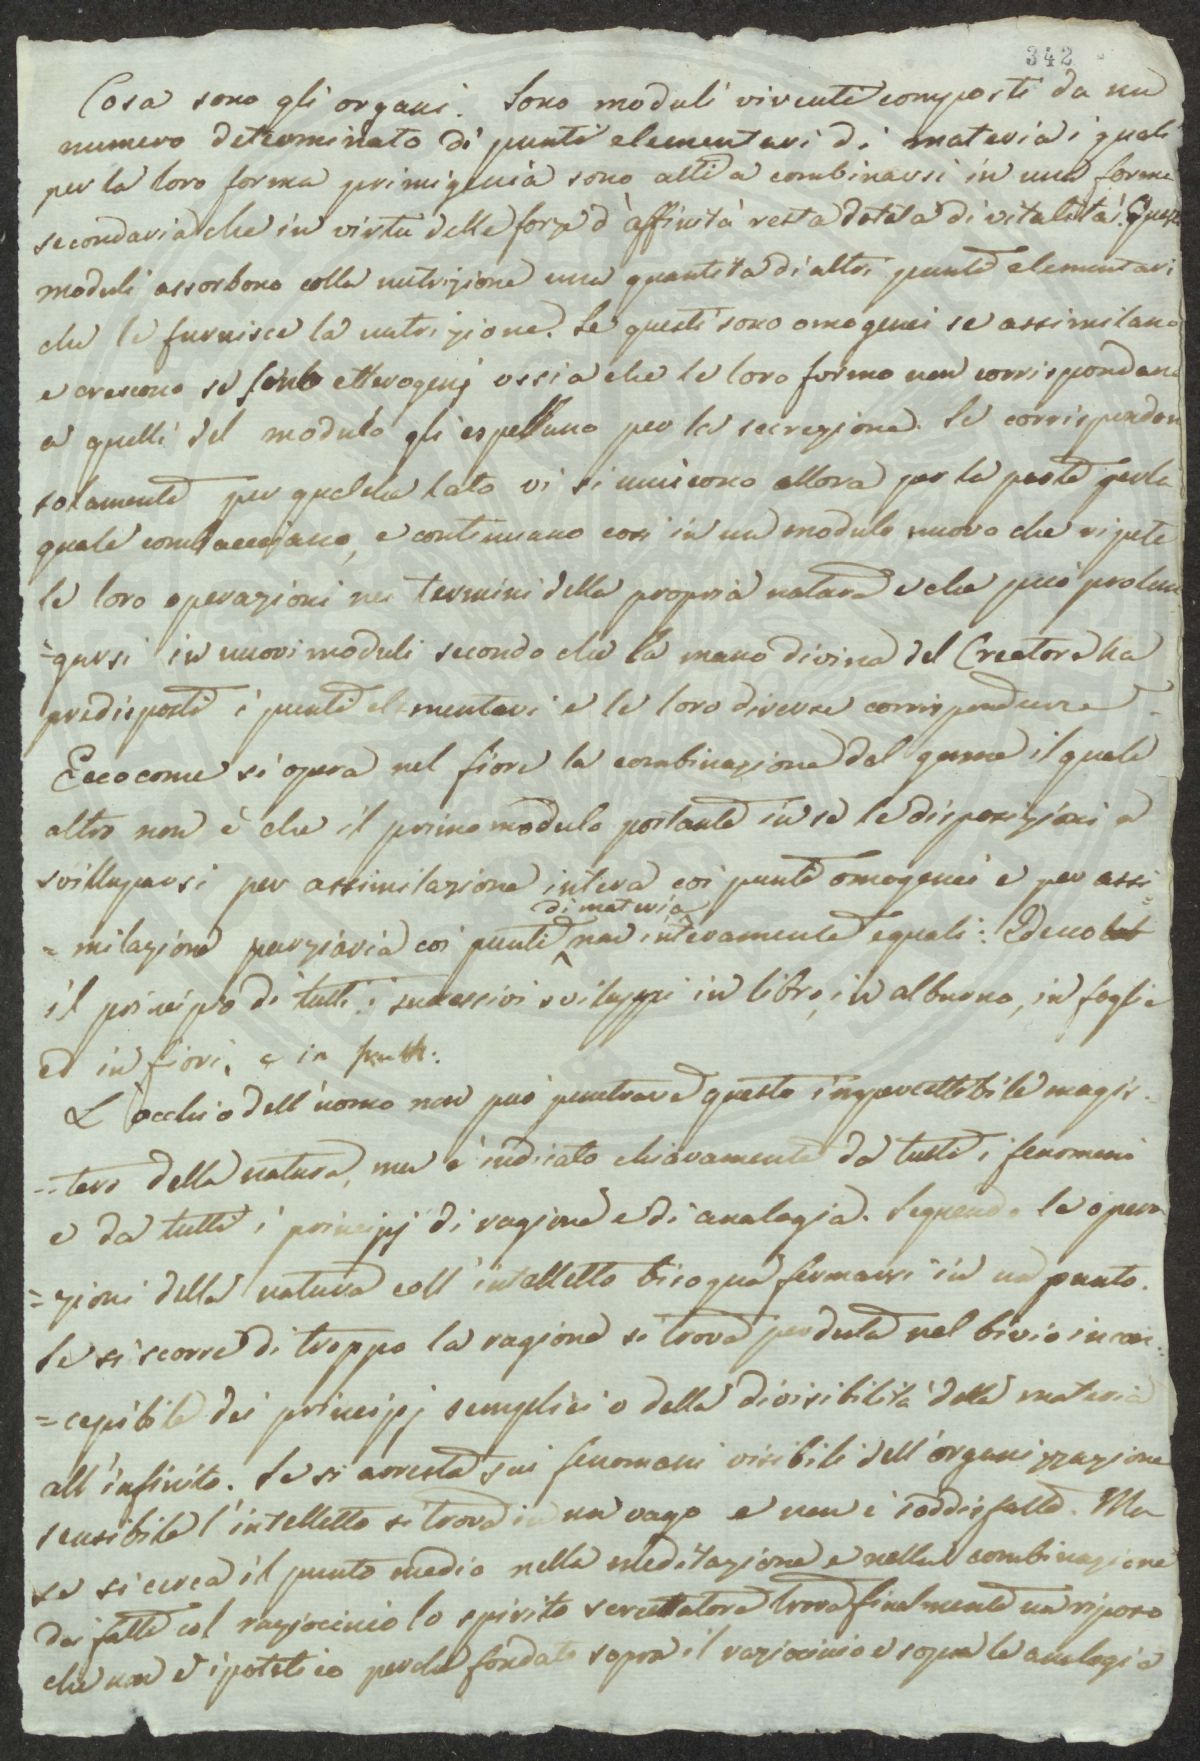 342
Cosa sono gli organi. Sono moduli viventi composti da un
numero determinato di punti elementari di materia i quali
per la loro forma primigenia sono atti a combinarsi in una forma
secondaria che in virtù delle forze d'affinità resta dotata di vitalità. Questi
moduli assorbono colla nutrizione una quantità di altri punti elementari
che le furnisce la nutrizione. Se questi sono omogenei se assimilano
e crescono se sono etterogenj ossia che le loro forme non corrispondano
a quelli del modulo gli espellano per la secrezione. Se corrispondon
solamente per qualche lato vi si uniscono allora per la parte per la
quale combacciano, e continuano così in un modulo nuovo che ripete
le loro operazioni nei termini della propria natura e che può prolun
=garsi in nuovi moduli secondo che la mano divina del Creatore ha
predisposti i punti elementari e le loro diverse corrispondenze.
Ecco come si opera nel fiore la combinazione del germe il quale
altro non è che il primo modulo portante in se le disposizioni a
svillupparsi per assimilazione intera coi punti omogenei e per assi
di materia
=milazione parziaria coi punti non interamente eguali: Ed ecco
il principio di tutti i successivi sviluppi in libro, in alburno, in foglie
ed in fiori, e in frutti.
L'occhio dell'uomo non può penetrare questo impercettibile magis
=tero della natura, ma è indicato chiaramente da tutti i fenomeni
e da tutti i principj di ragione e di analogia. Seguendo le opera
=zioni della natura coll'intelletto bisogna fermarsi in un punto.
Se si scorre di troppo la ragione si trova perduta nel bivio incon
=cepibile dei principj semplici o della divisibilità della materia
all'infinito. Se si arresta sui fenomeni visibili dell'organizzazione
sensibile l'intelletto si trova in un vago e non è soddisfatto. Ma
se si cerca il punto medio nella meditazione e nella combinazione
dei fatti col raziocinio lo spirito scrutatore trova finalmente un riposo
che non è ipotetico perchè fondato sopra il raziocinio e sopra le analogie